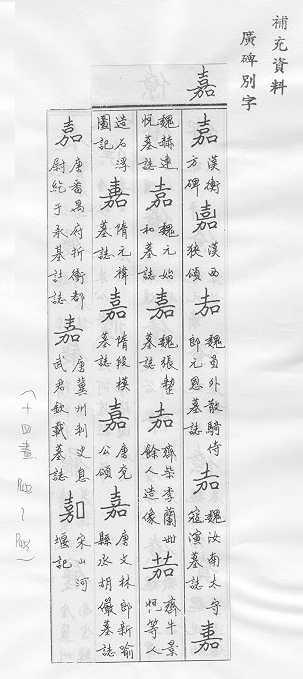 補充資料
廣碑別字
嘉
嘉 漢衡方碑 嘉 漢西狹頌 嘉 魏員外散騎侍郎元恩墓誌 嘉 魏汝南太守寇演墓誌 嘉
魏赫連悅墓誌 嘉 魏元始和墓誌 嘉 魏張整墓誌 嘉 齊柴季蘭卌餘人造像 嘉 齊牛景悅等人
造石浮圖記 嘉 隋元禕墓誌 嘉 隋段模墓誌 嘉 唐兗公頌 嘉 唐文林郎新喻縣丞胡儼墓誌
嘉 唐番禺府折衝都尉紇于承基誌誌 嘉 唐冀州刺史息武君欽載墓誌 嘉 宋山河堰記
(十四畫